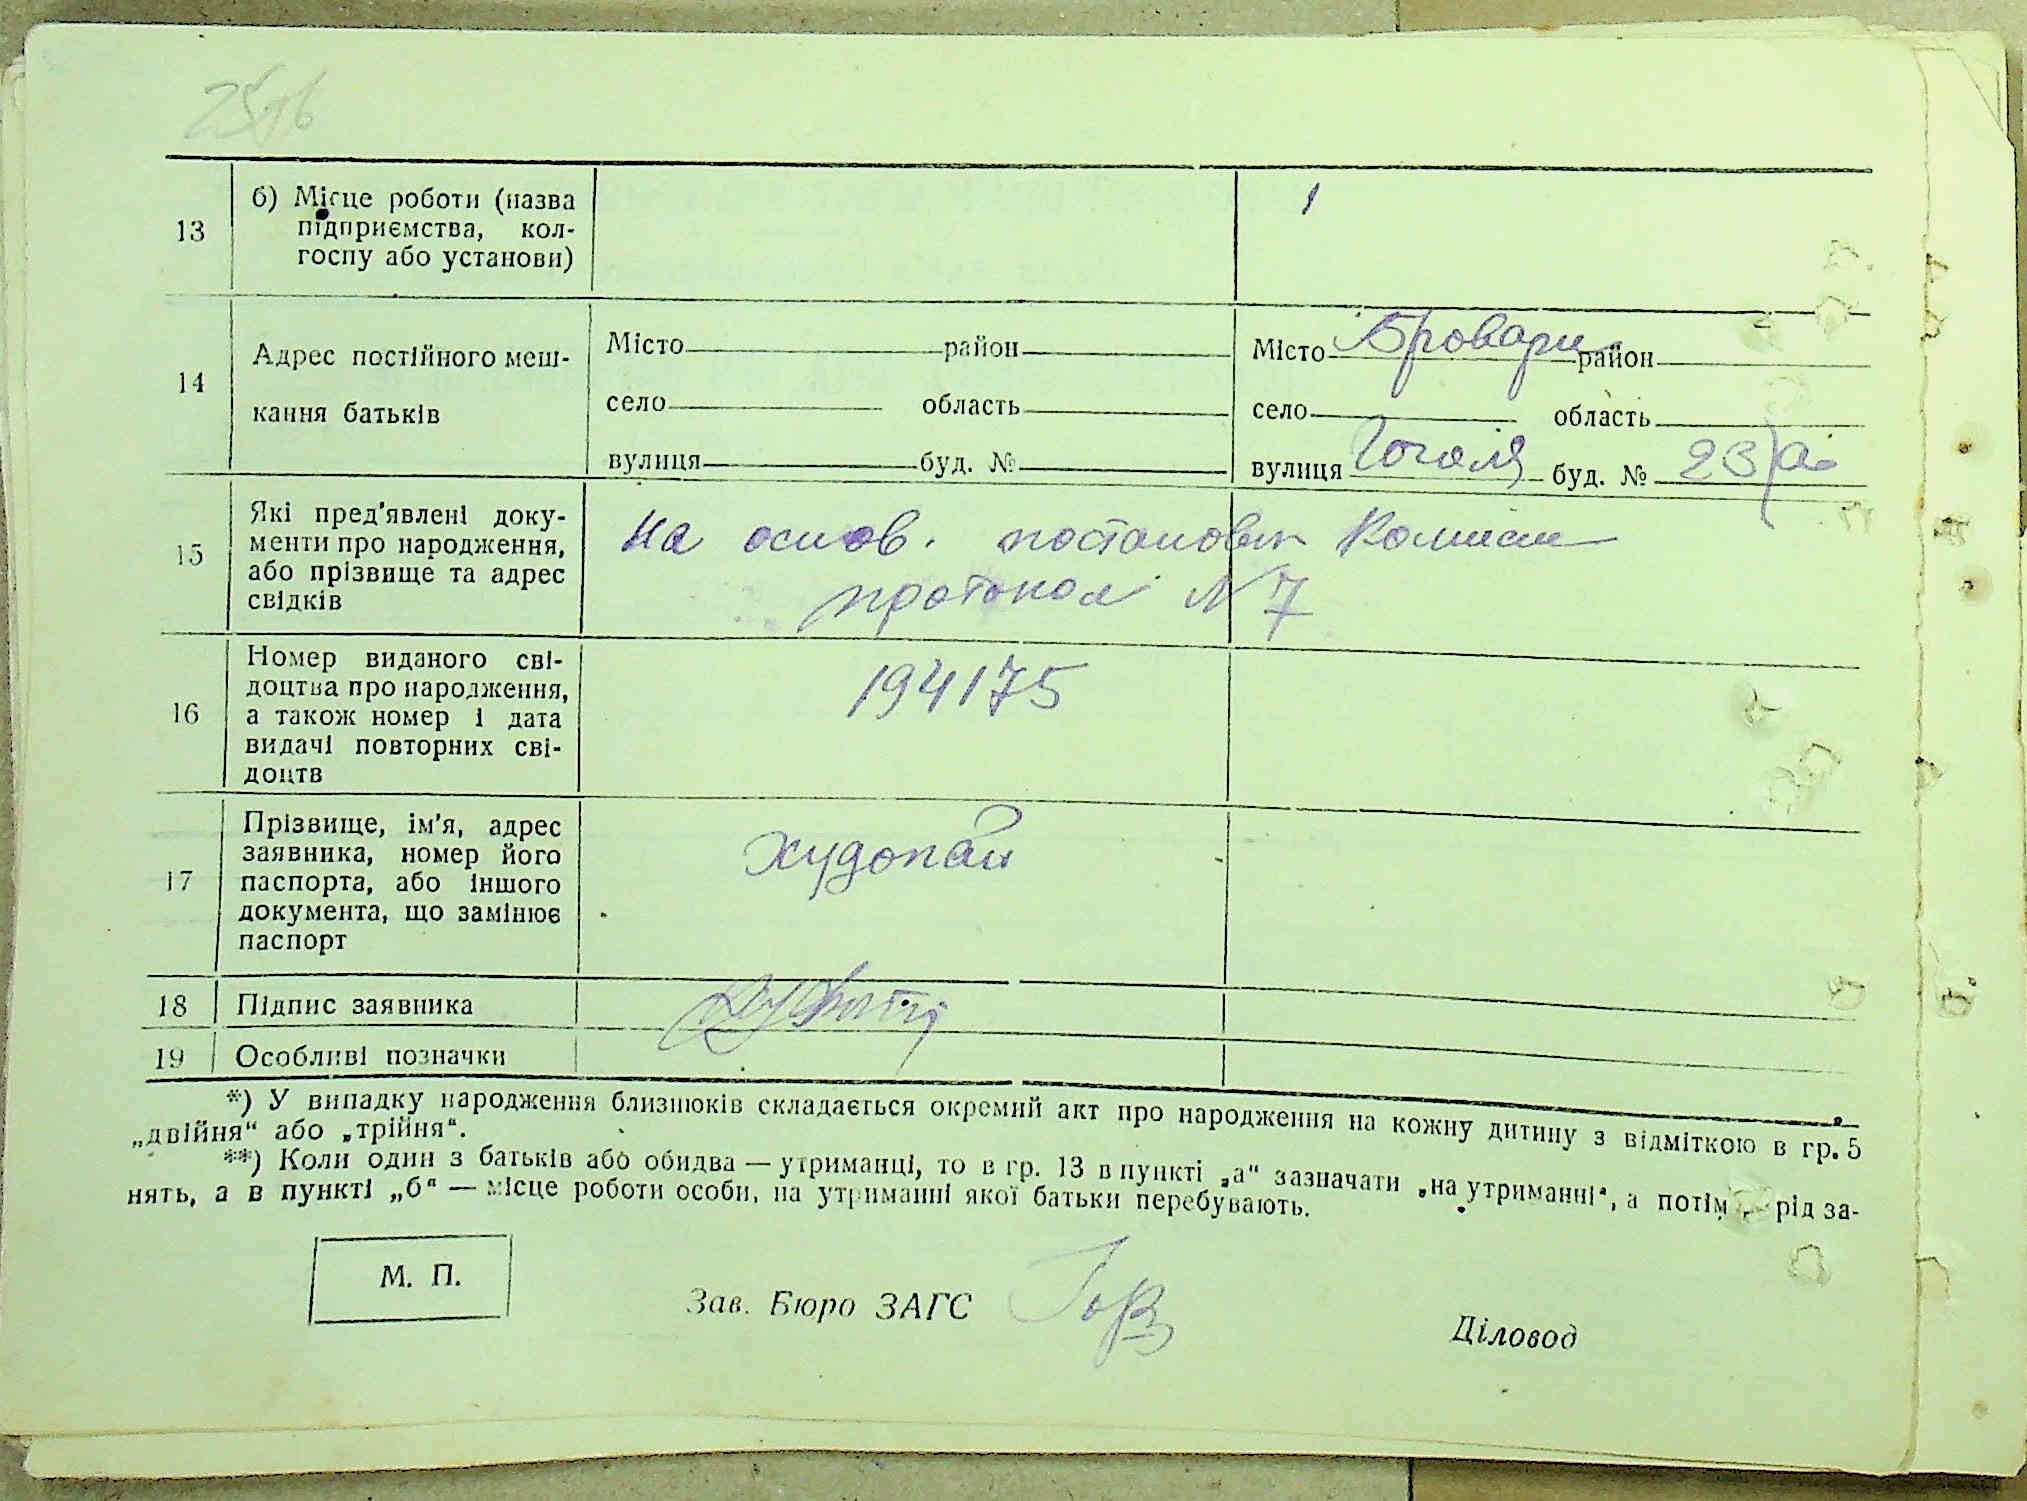 13
б) Місце роботи (назва
підприємства, кол-
госпу або установи)
14
Адрес постійного меш-
кання батьків
Місто район
село область
вулиця буд. №
Місто Бровари район
село область
вулиця Гоголя буд. № 23/а
15
Які пред'явлені доку-
менти про народження,
або прізвище та адрес
свідків
На основ. постанови Комисии
протокол N 7
16
Номер виданого сві-
доцтва про народження,
а також номер і дата
видачі повторних сві-
доцтв
194175
17
Прізвище, ім'я, адрес
заявника, номер його
паспорта, або іншого
документа, що замінює
паспорт
Худопай
18
Підпис заявника
19
Особливі позначки
*) У випадку народження близнюків складається окремий акт про народження на кожну дитину з відміткою в гр. 5
„двійня“ або „трійня“.
**) Коли один з батьків або обидва — утриманці, то в гр. 13 в пункті „а“ зазначати „на утриманні“, а потім рід за-
нять, а в пункті „б“ — місце роботи особи, на утриманні якої батьки перебувають.
М. П.
Зав. Бюро ЗАГС
Діловод